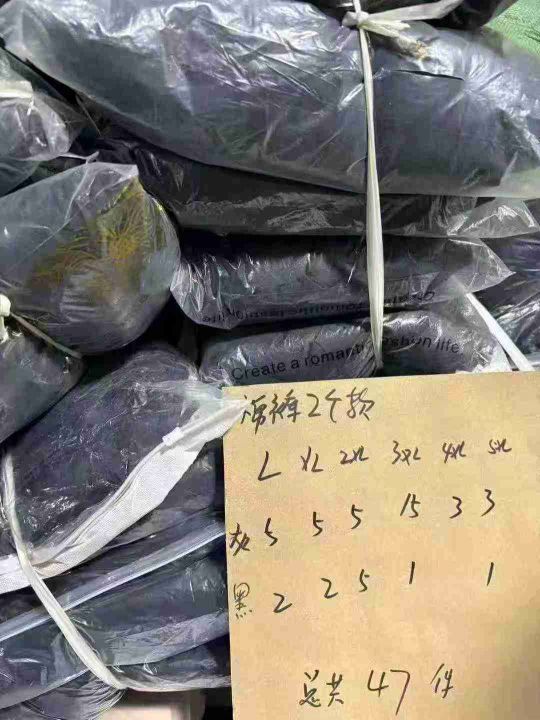 Create a life
裤2个款
L XL 2XL 3XL 4XL 5XL
灰 5 5 5 15 3 3
黑 2 2 5 1 1
总共 47 件